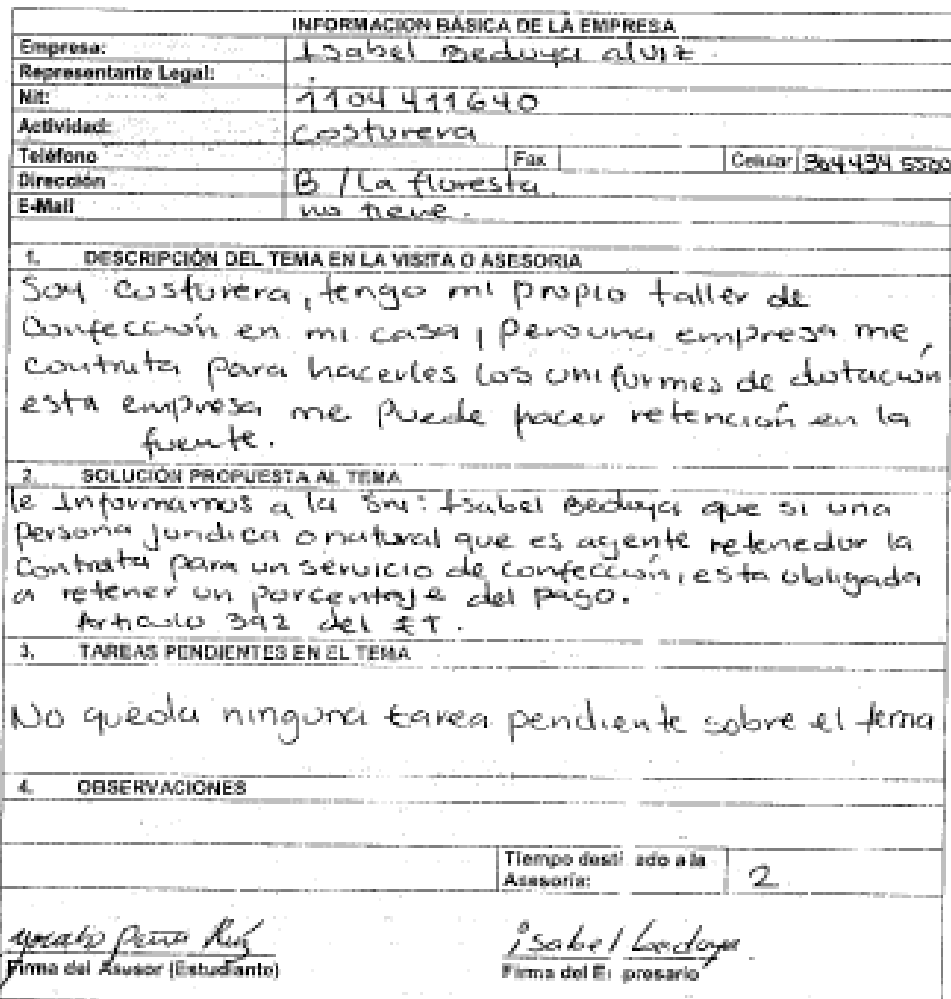 INFORMACION BÁSICA DE LA EMPRESA
Empresa: Isabel Beduya alviz
Representante Legal:
Nit: 1104411640
Actividad: Costurera
Teléfono Fax Celular 304 434 5500
Dirección B / La floresta
E-Mail no tiene.
1. DESCRIPCIÓN DEL TEMA EN LA VISITA O ASESORIA
Soy Costurera, tengo mi propio taller de
Confección en mi casa, pero una empresa me
contrata para hacerles los uniformes de dotación,
esta empresa me puede hacer retención en la
fuente.
2. SOLUCIÓN PROPUESTA AL TEMA
le Informamos a la Sra: Isabel Beduya que si una
Persona juridica o natural que es agente retenedor la
Contrata para un servicio de confección, esta obligada
a retener un porcentaje del pago.
Articulo 392 del ET.
3. TAREAS PENDIENTES EN EL TEMA
No queda ninguna tarea pendiente sobre el tema
4. OBSERVACIONES
Tiempo desti ado a la
Asesoría: 2
Peña Ruiz Isabel
Firma del Asesor (Estudiante) Firma del E presario